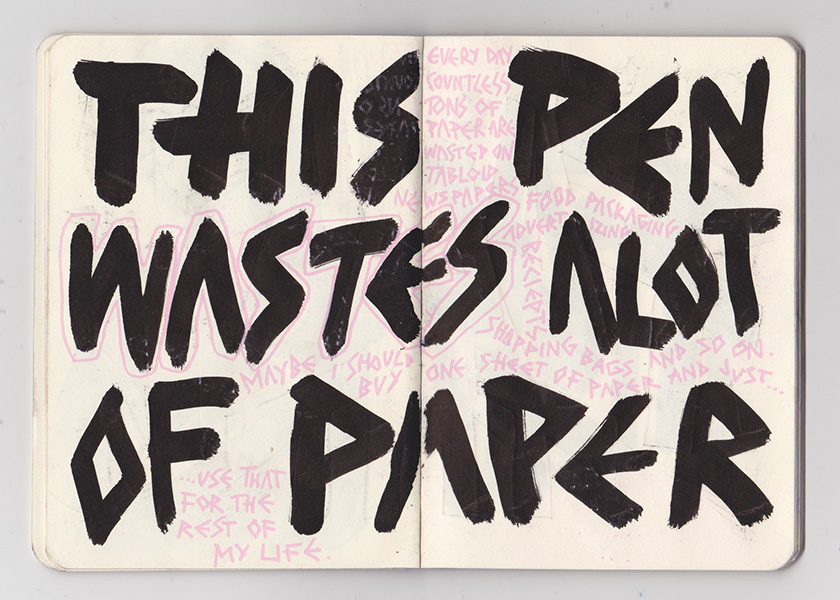 THIS PEN
WASTES ALOT
OF PAPER
EVERY DAY
COUNTLESS
TONS OF
PAPER ARE
WASTED ON
TABLOID
NEWSPAPERS FOOD PACKAGING
ADVERTISING
RECIEPTS
SHOPPING BAGS AND SO ON.
MAYBE I SHOULD
BUY ONE SHEET OF PAPER AND JUST...
...USE THAT
FOR THE
REST OF
MY LIFE.